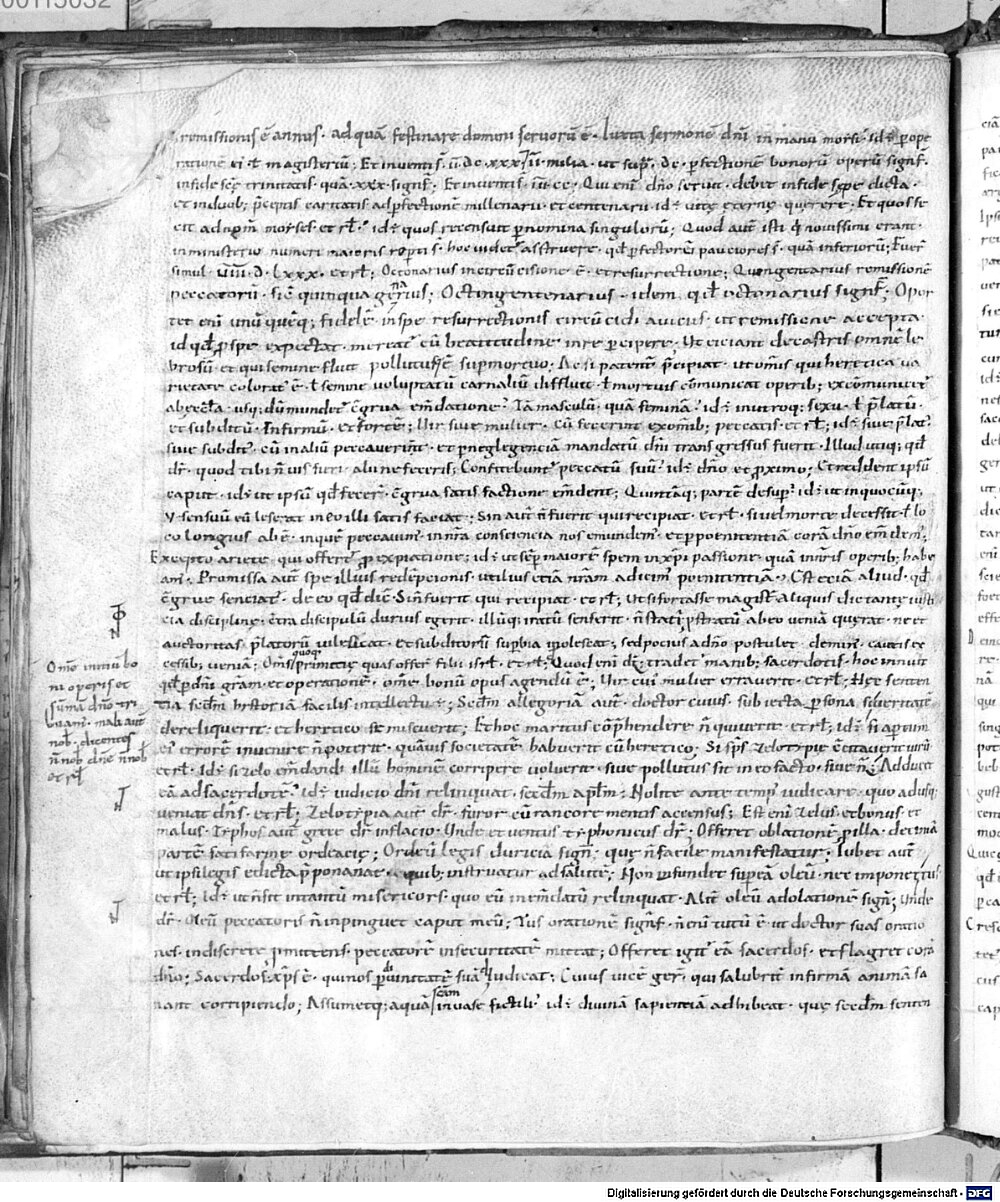 00115032
remissionis ē annus · ad quā festinare domini servorū ē · Iuxta sermonē dn̄i in manu morsi · idē p ope
ratione ei ł magisteriū ; Et inventi s̄ · de · xxx ii milia · ut sup̄ · de · pfectione bonorū operū signf̄ ·
in fide sc̄ę trinitatis · quā xxx · signf̄ · Et inventi s̄ · Qui eni dn̄o servit · debet in fide sępe dicta ·
et in duob; p̄ceptis caritatis ad pfectionē millenarii · et centenarii · id ē vitę ęternę querere · Et quos fe
cit ad nom̄ moyses et rł · id ē quos recensuit p nomina singulorū ; Quod aut̄ isti q novissimi erant ·
in ministerio numeri maioris
simul · viiii · d · lxxx · et rł ; Octonarius in circūcisione ē · et resurrectione ; Quingentarius remissionē
peccatorū · sic̄ quinquagenarius ; Octingentenarius · idem qd octonarius signf̄ · Opor
tet eni unū quēq; fidelē in spe resurrectionis circūcidi a viciis · ut remissione accepta
id qd p spe expectat · mereat̄ cū beatitudine in re pcipere ; Ut eiciant de castris omnē le
brosū et qui semine fluit pollutusq; ē sup mortuo · Ac si patent̄ p̄cipiat · ut omis qui heretica va
rietate colorat̄ ē · ł semine voluptatū carnaliū diffluit · ł mortuis cōmunicat operib; excomunicet̄
ab ęccła · usq; dū mundet̄ cgrua emdatione · Tā masculū · quā feminā · id ē in utroq; sexu · ł p̄latū ·
et subditū · Infirmū · et fortē ; Vir sive mulier · cū fecerint ex omib; peccatis · et rł ; id ē sive p̄lat̄
sive subdit̄ · cū in aliū peccaverint̄ · et p neglegenciā mandatū dn̄i transgressus fuerit · Illud utiq; qd
dr̄ · quod tibi n̄ vis fieri · alii ne feceris ; Confitebunt̄ peccatū suū · id ē dn̄o et pximo ; Et reddent ipsū
caput · id ē ut ipsū qd fecer̄ · cgrua satisfactione emdent ; Quintāq; partē desup̄ · id ē ut in quocūq;
V sensuū eū leserat in eo illi satis faciat ; Sin aut̄ n̄ fuerit qui recipiat · et rł · si vel morte decessit · ł lo
co longius abē · in quē peccavim̄ · in nr̄a consciencia nos emundem̄ · et p poenitentiā corā dn̄o emdem̄ ·
Excepto ariete · qui offert̄ p expiatione ; id ē ut sēp maiorē spem in xp̄i passione · quā in nr̄is operib; habe
am̄ · Promissa aut̄ spe illius redēpcionis · utilius etiā nr̄am adicim̄ poenitentiā · Est eciā aliud · qd
cgrue senciat̄ · de eo qd dic̄ · Sin fuerit qui recipiat · et rł ; Ut si fortasse magist̄ aliquis dictante iusti
cia disciplinę · ctra discipulū durius egerit · illūq; iratū senserit · n̄ statī pstratū ab eo veniā quęrat · ne et
auctoritas p̄latorū vilescat · et subditorū supbia ipolescat ; sed pocius a dn̄o postulet clemencię eius ex
cessib; veniā ; Oms quoq; primitię quas offer̄ filii isrł · et rł · Quod eni dr̄ tradet manib; sacerdotis · hoc innuit
qd p dn̄i gr̄am et operationē · om̄e bonū opus agendū ē ; Vir cui mulier erraverit · et rł ; Hęc senten
tia secdm historiā facilis intellectu ē ; Secdm allegoriā aut̄ · doctor cui subiecta psona si veritatē
dereliquerit · et heretico se miscuerit ; Et hoc maritus cōphendere n̄ quiverit · et rł ; id ē si aptum
ei errorē invenire n̄ poterit · quāvis societatē habuerit cū heretico · Si sp̄s zelotypię ccitaverit virū
et rł · Id ē si zelo emdandi illū hominē corripere voluerit · sive pollutus sit in eo facto · sive n̄ ; Adducet
eā ad sacerdotē · id ē iudicio dn̄i relinquat · secdm apłm · Nolite ante temp̄ iudicare · quo adusq;
veniat dn̄s · et rł ; Zelotypia aut̄ dr̄ · furor cū rancore mentis accensus ; Est eni zelus · et bonus et
malus · Typhos aut̄ grece dr̄ inflacio · Unde et ventus typhonicus dr̄ ; Offeret oblationē p illa · decimā
partē sati farinę ordeacię ; Ordeū legis duriciā sign̄ · quę n̄ facile manifestatur ; Iubet aut̄
ut ipsi legis edicta p̄ponantur · quib; instruatur ad salutē ; Non infundet sup eā oleū · nec imponet tus
et rł ; Id ē ut n̄ sit in tantū misericors · quo eū inemdatū relinquat · Alit̄ oleū adolatione sign̄ ; Unde
dr̄ · Oleū peccatoris n̄ inpinguet caput meū ; Tus orationē signf̄ · n̄ eni tutū ē · ut doctor suas oratio
nes indiscrete pmittens · peccatorē in securitatē mittat ; Offeret igit̄ eā sacerdos · et flagret corā
dn̄o ; Sacerdos xp̄s ē · qui nos p divinitatē suā iudicat ; Cuius vicē ger̄ · qui salubrit̄ infirmā animā sa
nant corripiendo ; Assumetq; aquā scam in vase fictili · id ē divinā sapientiā adhibeat · quę secdm senten
Om̄e initiū bo
ni operis et
summa dn̄o tri
buam̄ · mala aut̄
nob̄ · dicentes
n̄ nob̄ dn̄e n̄ nob̄
et rł
Digitalisierung gefördert durch die Deutsche Forschungsgemeinschaft · DFG